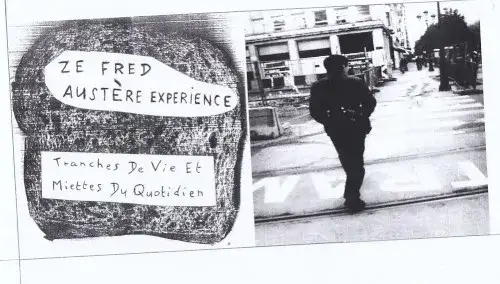 ZE FRED
AUSTÈRE EXPERIENCE
Tranches De Vie Et
Miettes Du Quotidien